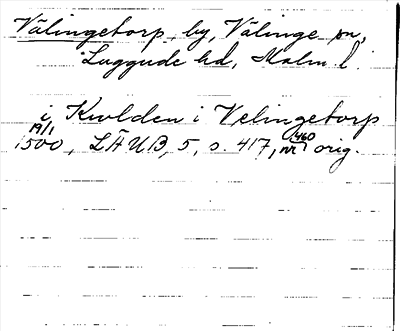 Välingetorp by, Välinge sn,
Luggude hd, Malm. l.
i Kwlden i Velingetorp
19/1
1500, LÄUB, 5, s. 417, nr 460 orig.